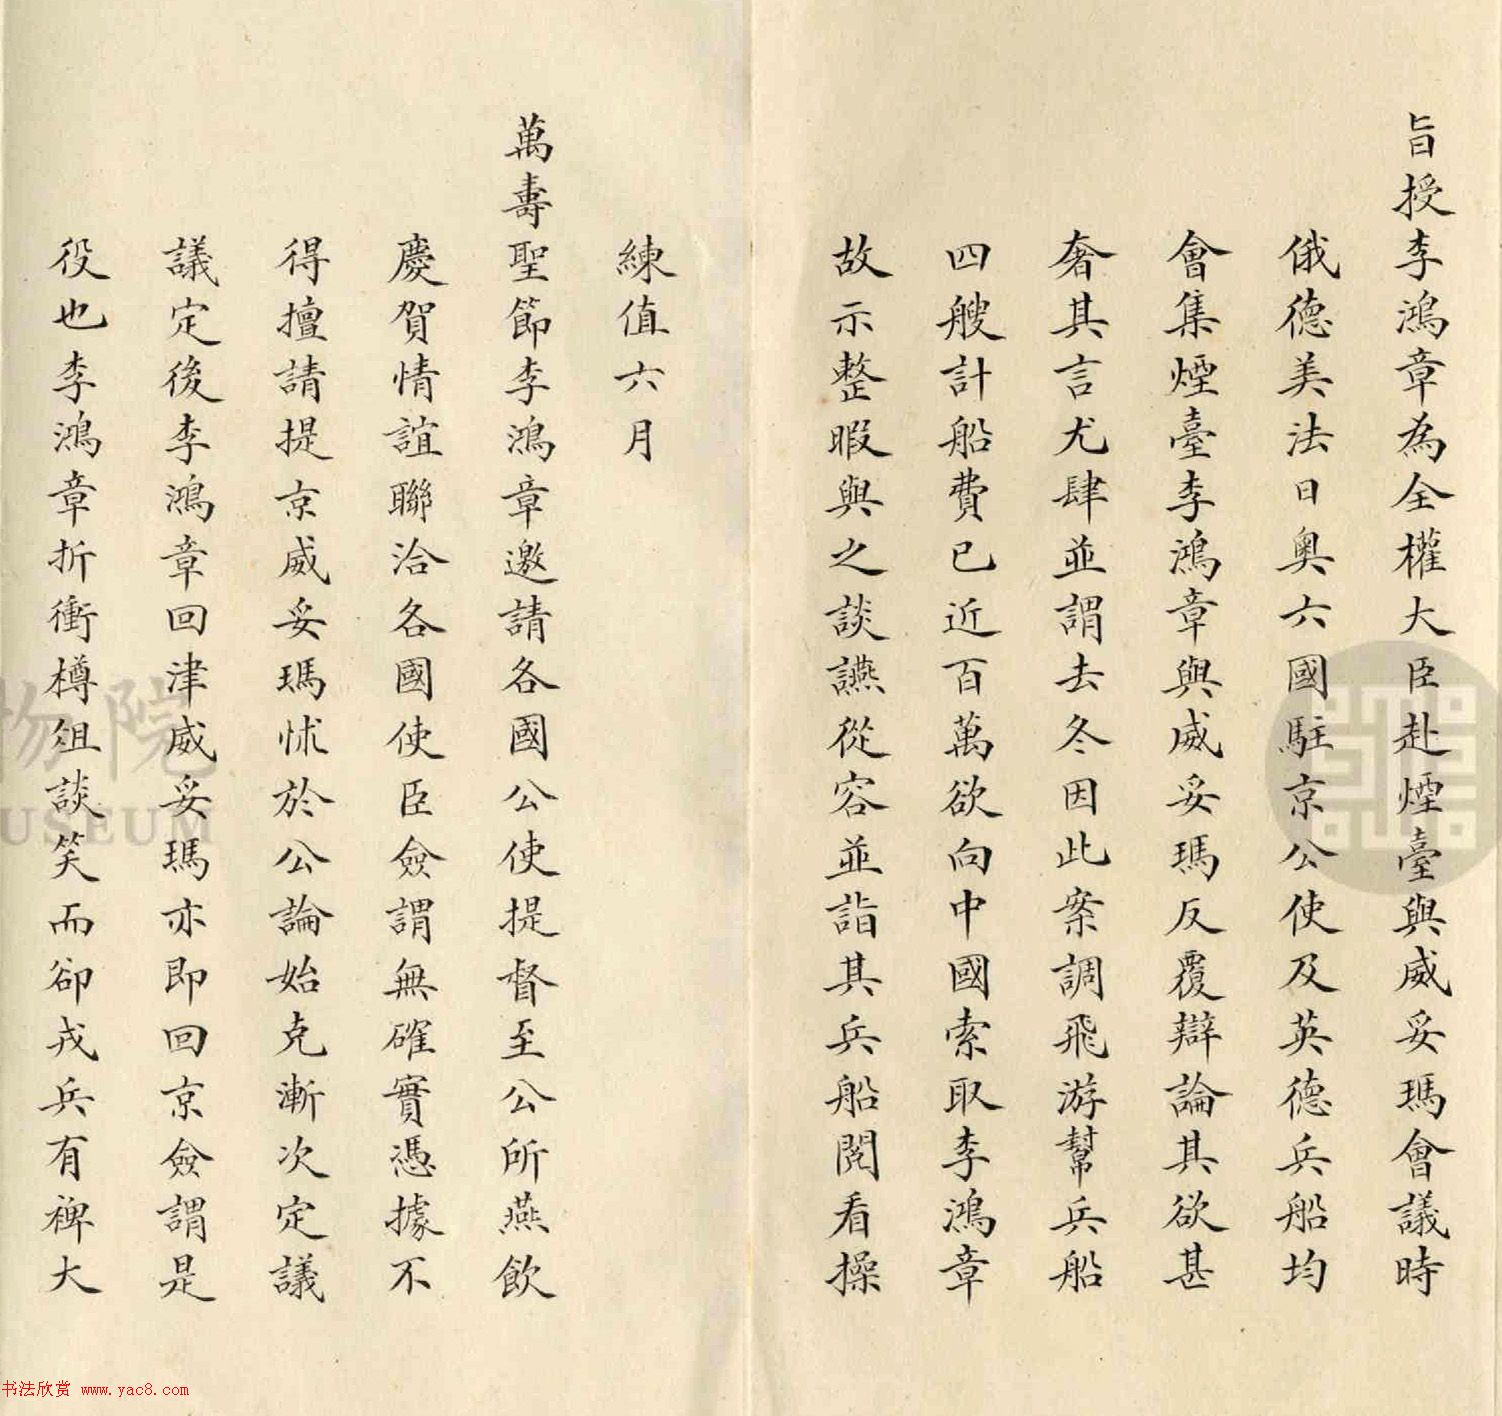 旨授李鴻章為全權大臣赴煙臺與威妥瑪會議時
俄德美法日奧六國駐京公使及英德兵船均
會集煙臺李鴻章與威妥瑪反覆辯論其欲甚
奢其言尤肆並謂去冬因此案調飛游幫兵船
四艘計船費已近百萬欲向中國索取李鴻章
故示整暇與之談讌從容並詣其兵船閱看操
練值六月
萬壽聖節李鴻章邀請各國公使提督至公所燕飲
慶賀情誼聯洽各國使臣僉謂無確實憑據不
得擅請提京威妥瑪怵於公論始克漸次定議
議定後李鴻章回津威妥瑪亦即回京僉謂是
役也李鴻章折衝樽俎談笑而卻戎兵有裨大
物院
USEUM
书法欣赏 www.yac8.com